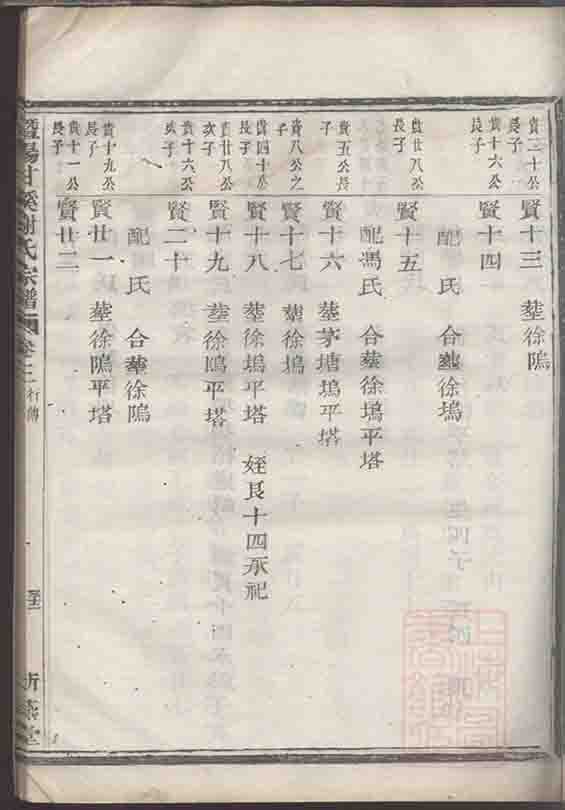 貴二十公長子 賢十三 葬徐隝
貴十六公長子 賢十四
配 氏 合葬徐塢
貴廿八公長子 賢十五
配馮氏 合葬徐塢平塔
貴五公長子 賢十六 葬茅塘塢平塔
貴八公之子 賢十七 葬徐塢
貴四十公長子 賢十八 葬徐塢平塔 姪良十四承祀
貴廿八公次子 賢十九 葬徐隝平塔
貴十六公次子 賢二十
配 氏 合葬徐隝
貴十九公長子 賢廿一 葬徐隝平塔
貴十一公長子 賢廿二
暨陽甘溪謝氏宗譜 卷 行傳 堂